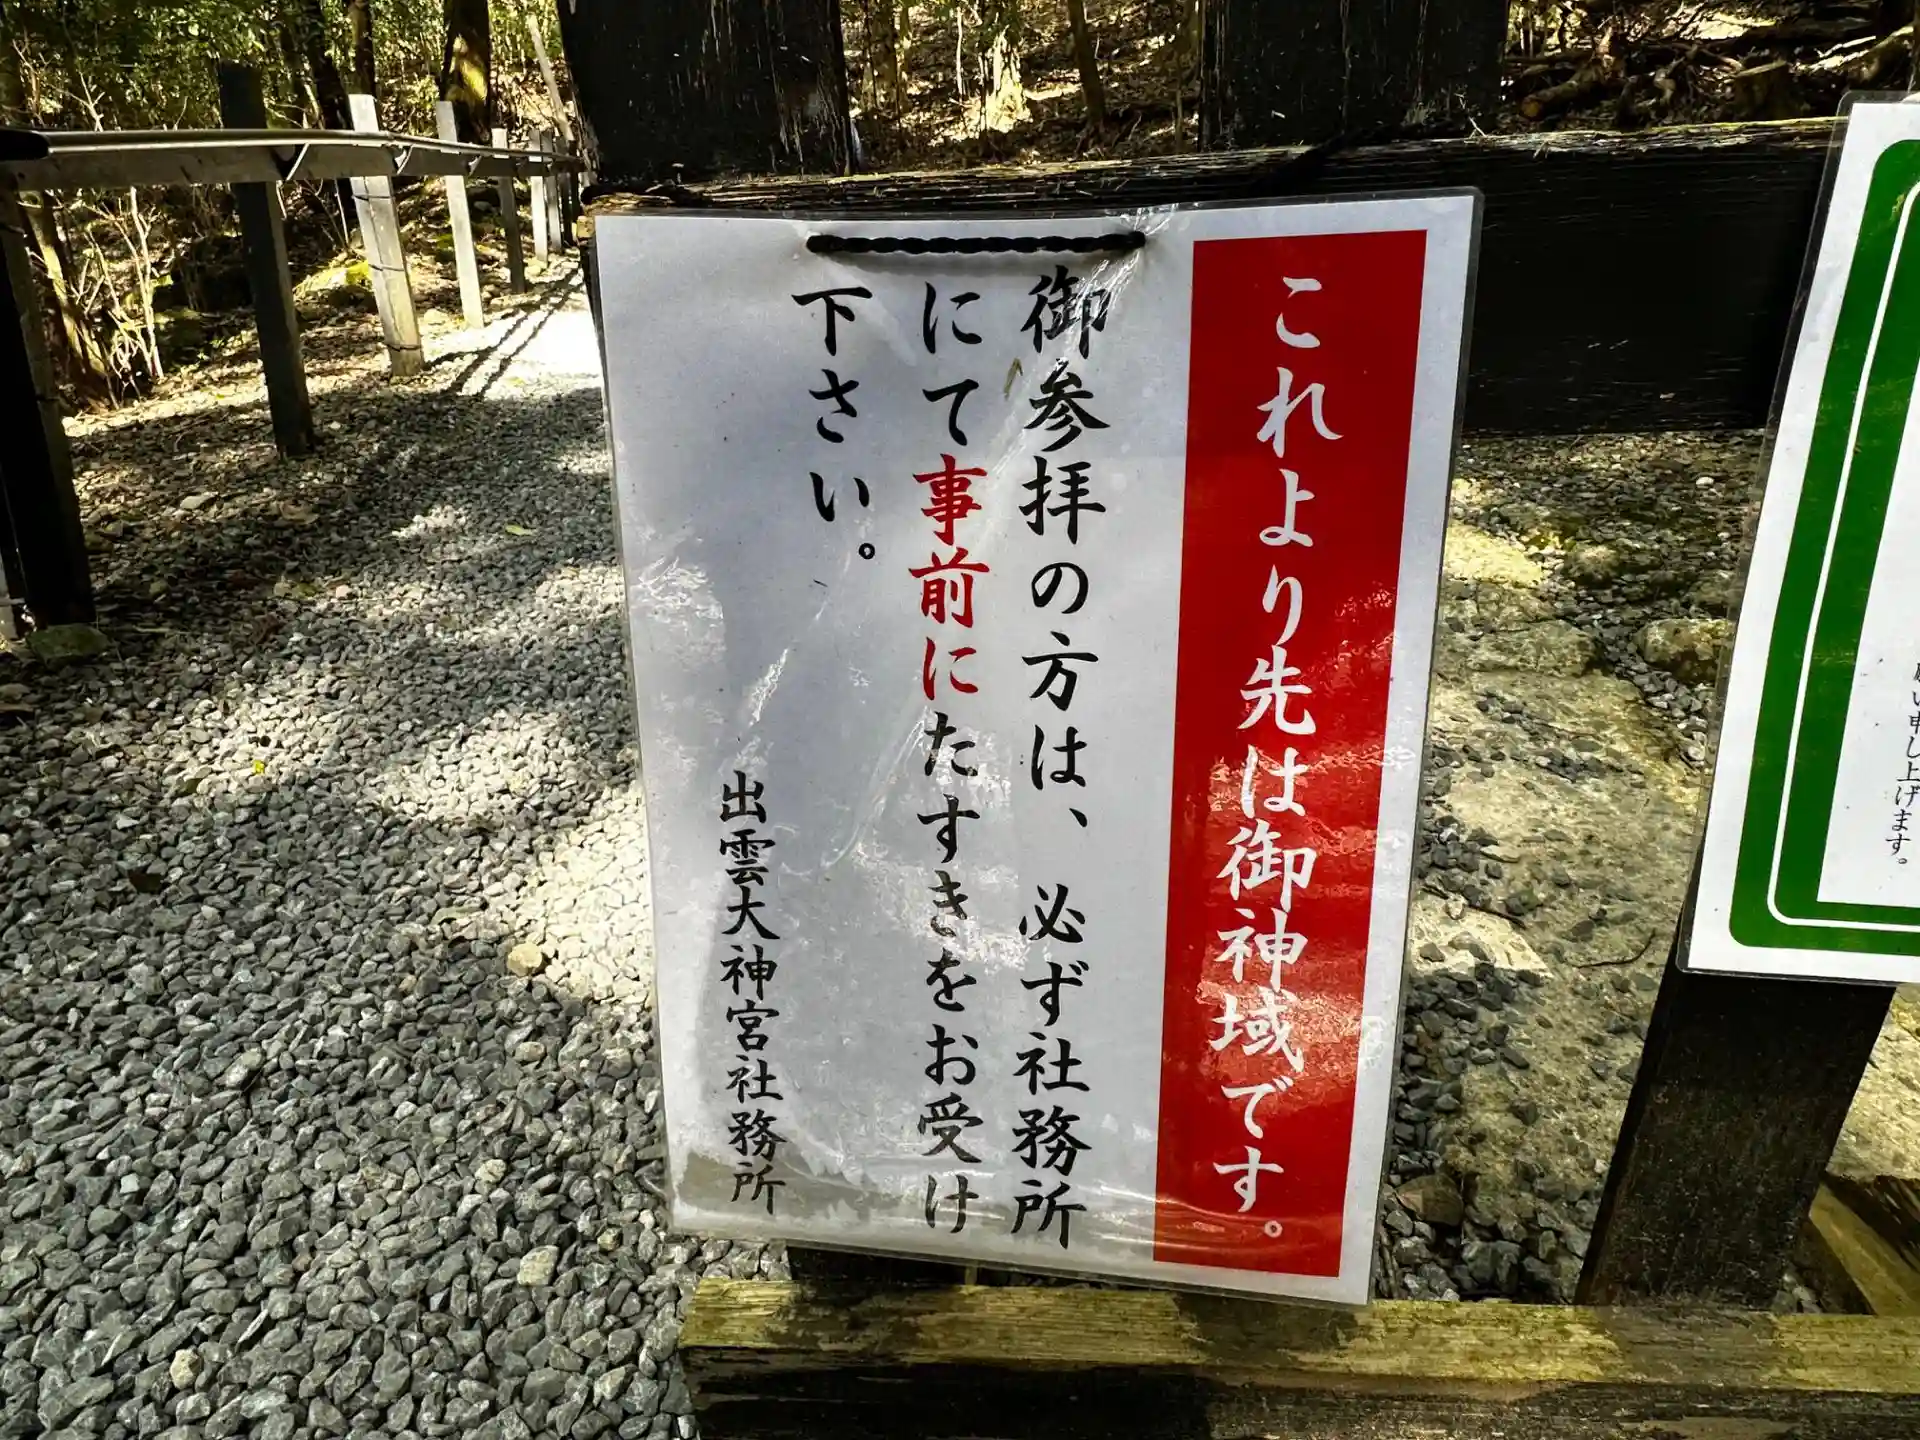 これより先は御神域です。
御参拝の方は、必ず社務所
にて事前にたすきをお受け
下さい。
出雲大神宮社務所
い申し上げます。